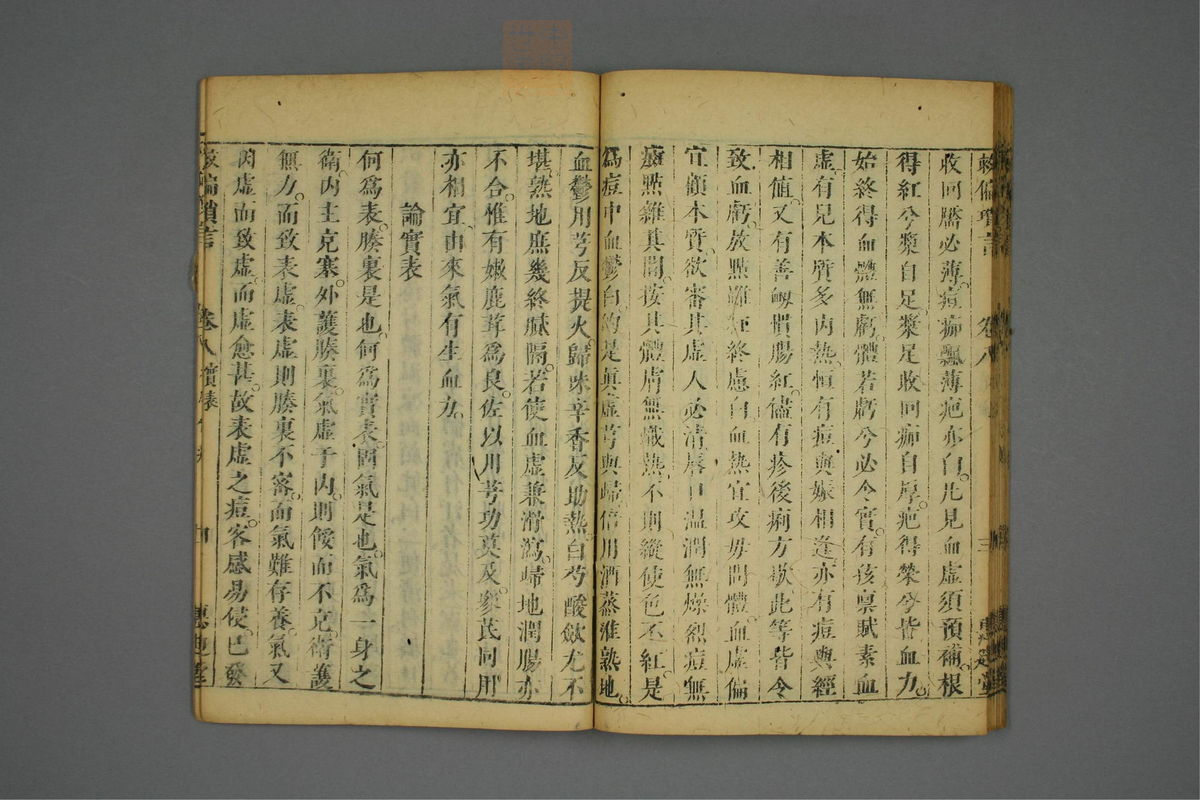 救偏瑣言 卷八 三
收回靨必薄。痘痂飄薄。疤亦白。凡見血虛須預補。根
得紅兮漿自足。漿足收回痂自厚。疤得榮兮皆血力。
始終得血體無虧。體若虧兮必令實。有孩稟賦素血
虛。有兒本質多內熱。恒有痘與娠相逢。亦有痘與經
相值。又有善衂慣腸紅。儘有疹後痢方歇。此等皆令
致血虧。放點雖 終慮白。血熱宜攻毋問體。血虛偏
宜顧本質。欲審其虛人必清。唇口溫潤無燥烈。痘無
瘀點雜其間。按其體膚無熾熱。不則縱使色不紅。是
為痘中血鬱白。的是眞虛芎與歸。倍用酒蒸淮熟地。
血鬱用芎反提火。歸味辛香反助熱。白芍酸歛尤不
堪。熟地庶幾終膩隔。若使血虛兼滑瀉。歸地潤腸亦
不合。惟有嫩鹿茸為良。佐以用芎功莫及。參芪同用
亦相宜。由來氣有生血力。
論實表
何為表。腠裏是也。何為實表。固氣是也。氣為一身之
衛。內主克塞。外護腠裏。氣虛于內。則餒而不克。衛護
無力。而致表虛。表虛則腠裏不密。而氣難存養。氣又
因虛而致虛。而虛愈甚。故表虛之痘。客感易侵。已發
救偏瑣言 卷八 實表